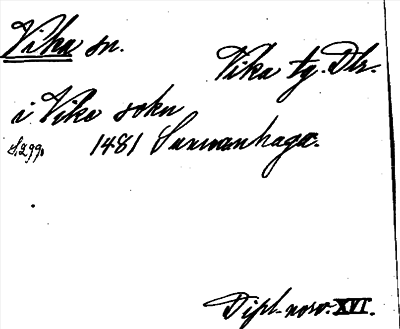 Vika sn.
Vika tg. Dlr.
i Vika sokn
S. 299 1481 Sunnanhaga.
Dipl. norv. XVI.